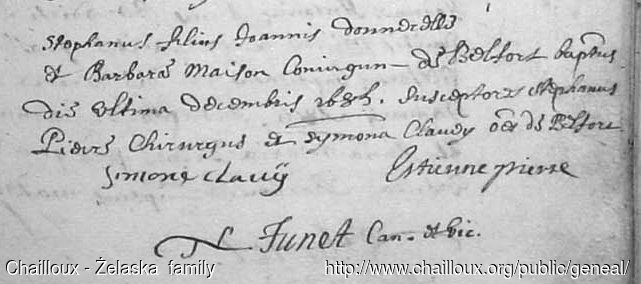 Stephanus filius Joannis donnerelle
et Barbaræ Maison Coniugum de Belfort baptus
die ultima decembris susceptores Stephanus
Pierre Chirurgus et Symona Clavey oes de Belfort
Simone clavÿ Estienne pierre
Funet Can. et vic.
Chailloux - Żelaska family http://www.chailloux.org/public/geneal/